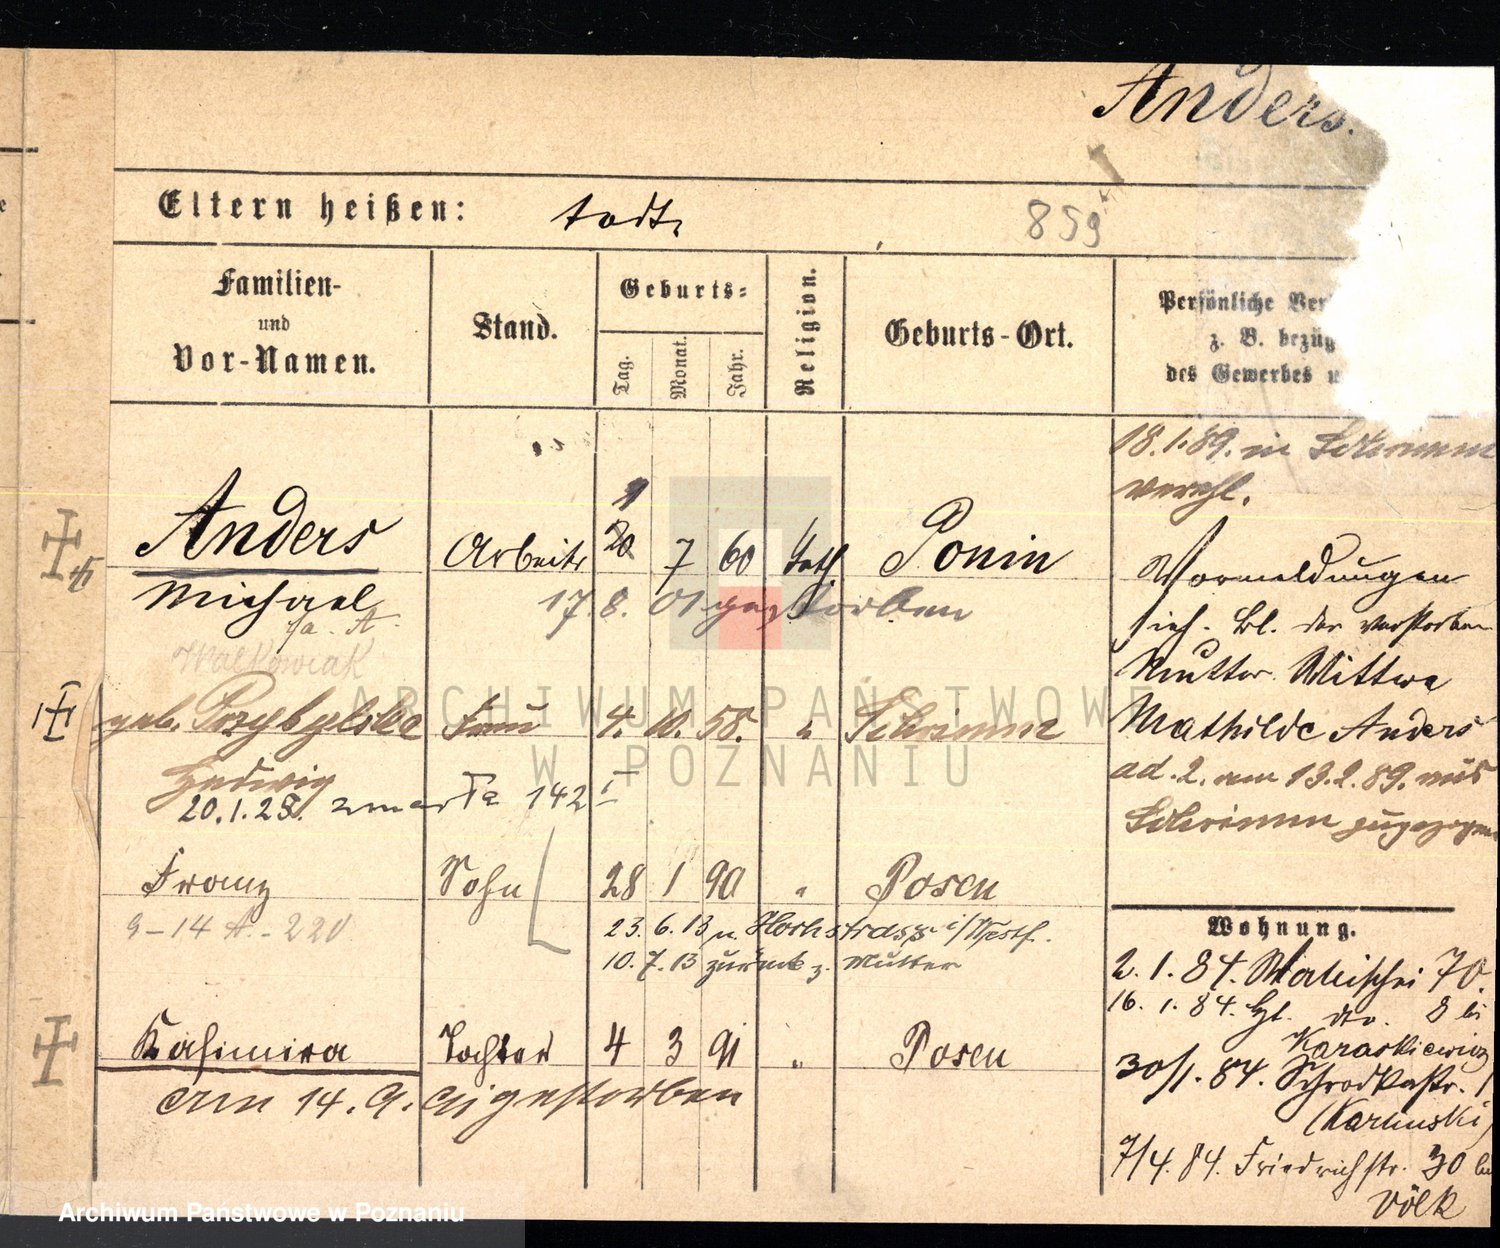 Anders.
Eltern heißen: todt
859
Familien-
und
Vor-Namen.
Stand.
Geburts-
Tag.
Monat.
Jahr.
Religion.
Geburts-Ort.
Persönliche
z. B.
des Gewerbes
18.1.89. in Schrimm
verehl.
Anders
Michael
Arbeiter
20 7 60 kath Ponin
17. 8. 01 gestorben
Walkowiak
Vormeldungen
sieh. Bl. der verstorben
Mutter Wittwe
Mathilde Anders
ad. 2. am 13.2.89. aus
Schrimm zugezogen
geb. Przybylska Frau 4. 10. 58. " Schrimm
Hedwig
20.1.28. zmarła 142 I
Franz Sohn 28 1 90 " Posen
9-14 A. - 220
23. 6. 13 n. i/Westf.
10. 7. 13 zurück z. Mutter
Kasimira Tochter 4 3 91 " Posen
am 14. 9. 91 gestorben
Wohnung.
2. 1. 84. Wallischei 70.
16. 1. 84. dto. 8 bei
Karaskiewicz
30/1. 84. Schrodkastr. 1
(Karlinski)
7/4. 84. Friedrichstr. 30 bei
Völk
ARCHIWUM PAŃSTWOWE
W POZNANIU
Archiwum Państwowe w Poznaniu